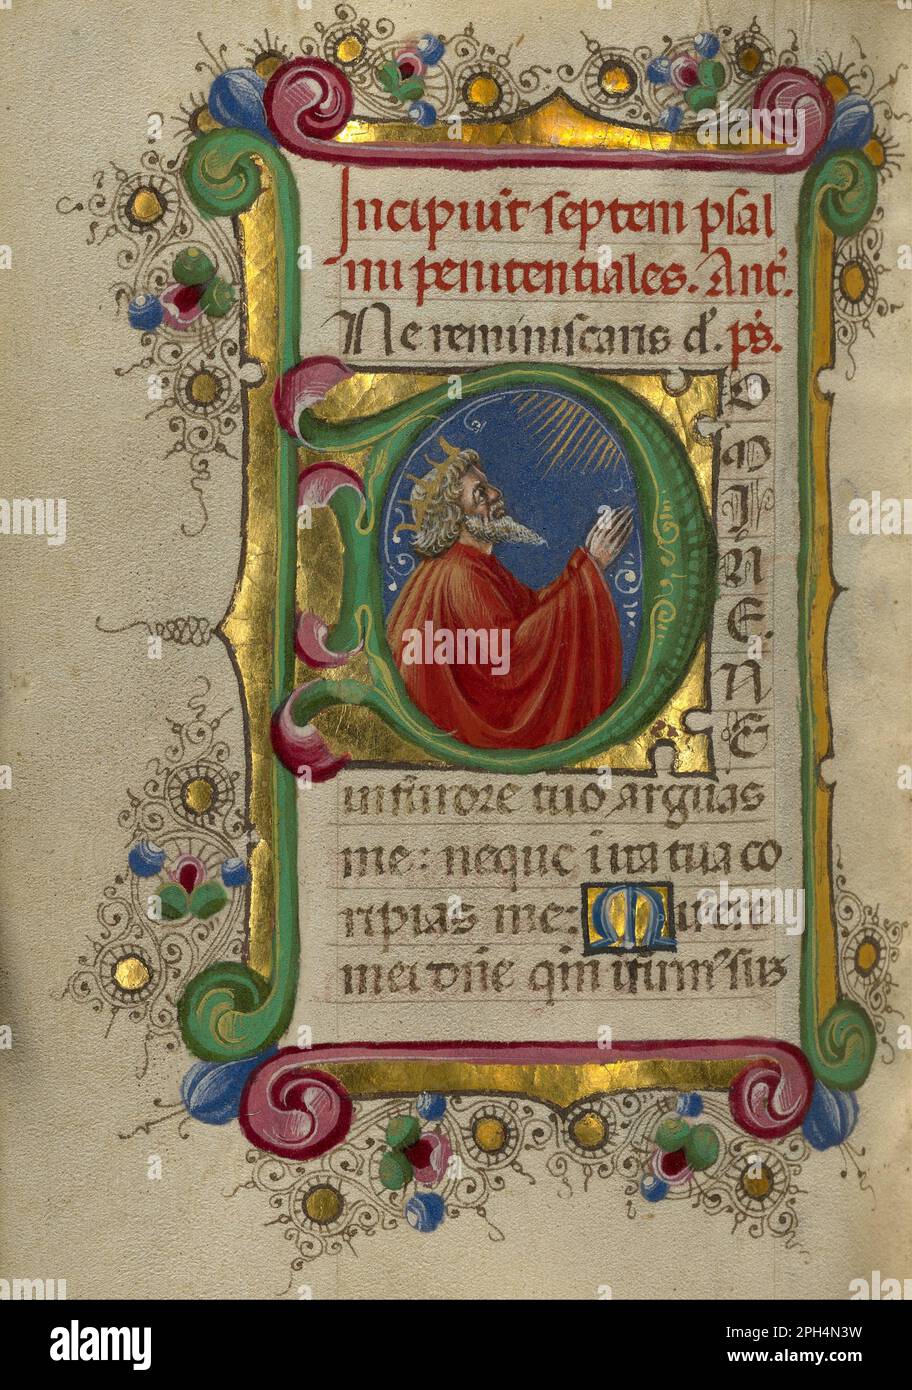 Incipiūt septem psal
mi penitentiales. Ant̄.
Ne reminiscaris d̄. p̄s.
DOMINE.NE
in furore tuo arguas
me: neque i ira tua co
ripias me: Misere
mei dn̄e qm̄ infirm᷒ sus
alamy
Image ID: 2PH4N3W
www.alamy.com